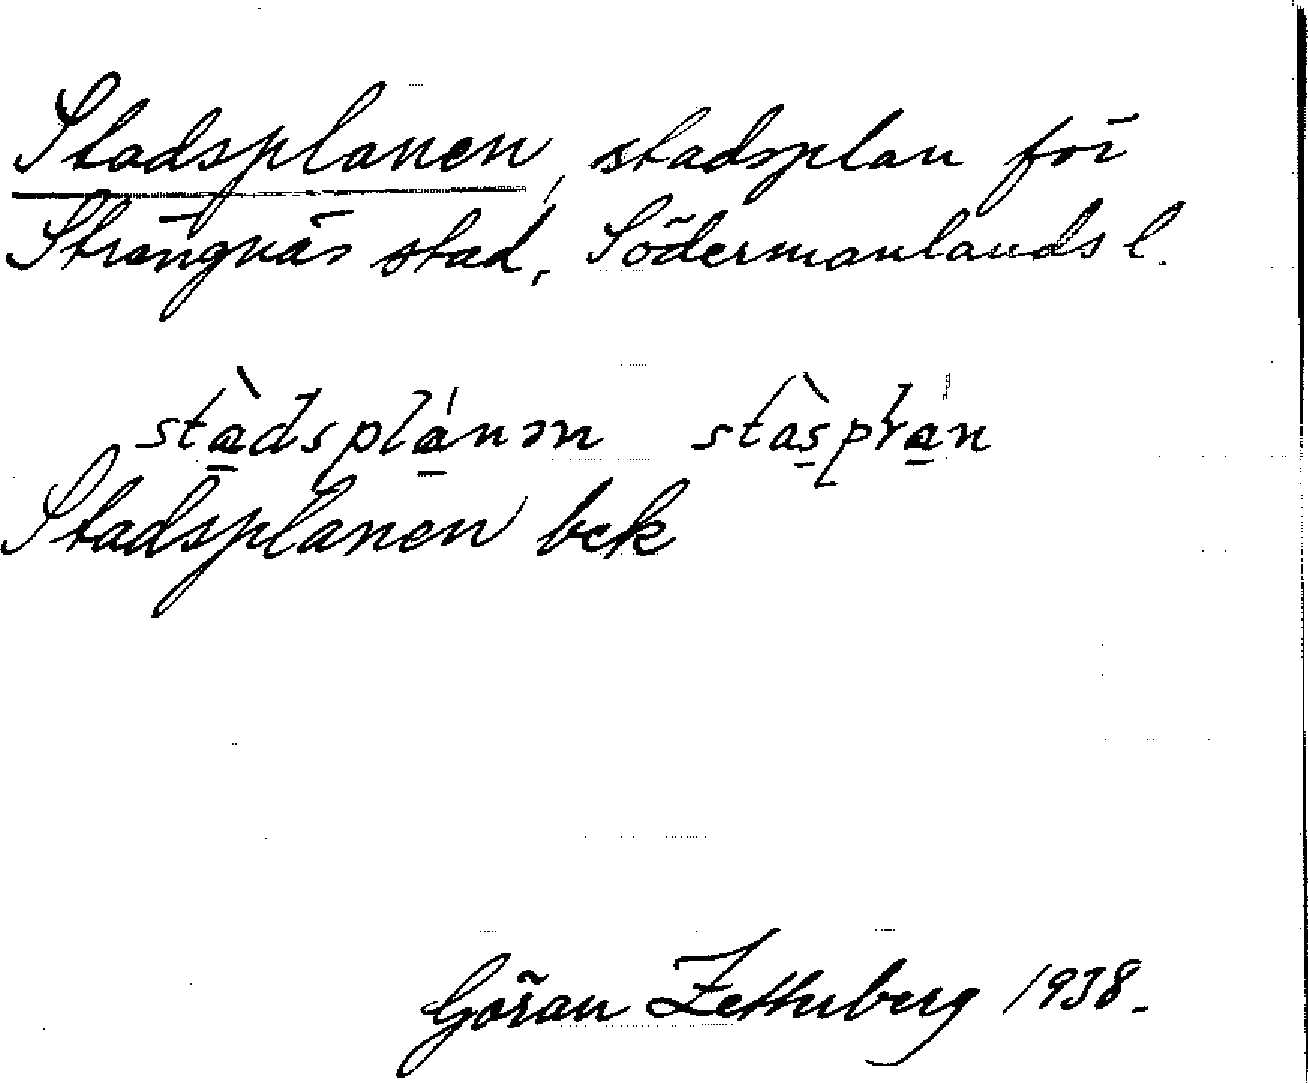 Stadsplanen, stadsplan för
Strängnäs stad, Södermanlands l.
stàdsplánən stàsplán
Stadsplanen bek
Göran Zetterberg 1938.